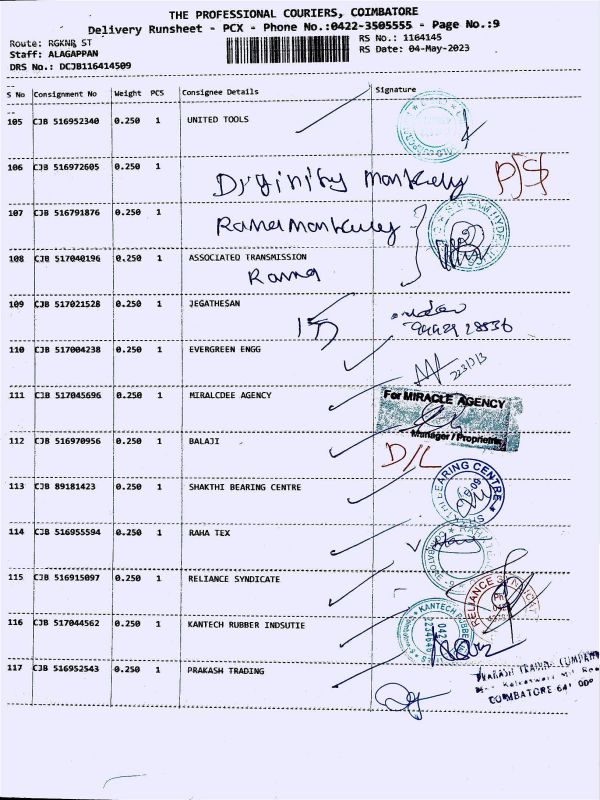 THE PROFESSIONAL COURIERS, COIMBATORE
Delivery Runsheet - PCX - Phone No.:0422-3505555 - Page No.:9
Route: RGKNR ST
RS No.: 1164145
Staff: ALAGAPPAN
RS Date: 04-May-2023
DRS No.: DCJB116414509
S No Consignment No Weight PCS Consignee Details Signature
105 CJB 516952340 0.250 1 UNITED TOOLS
106 CJB 516972605 0.250 1
107 CJB 516791876 0.250 1
108 CJB 517040196 0.250 1 ASSOCIATED TRANSMISSION
Rama
109 CJB 517021528 0.250 1 JEGATHESAN
110 CJB 517004238 0.250 1 EVERGREEN ENGG
111 CJB 517045696 0.250 1 MIRALCDEE AGENCY
For MIRACLE AGENCY
Manager / Proprietrix
112 CJB 516970956 0.250 1 BALAJI
D/L
113 CJB 89181423 0.250 1 SHAKTHI BEARING CENTRE
BEARING CENTRE
114 CJB 516955594 0.250 1 RAHA TEX
115 CJB 516915097 0.250 1 RELIANCE SYNDICATE
RELIANCE
116 CJB 517044562 0.250 1 KANTECH RUBBER INDSUTIE
KANTECH RUBBER
117 CJB 516952543 0.250 1 PRAKASH TRADING
PRAKASH TRADING COMPANY
COIMBATORE